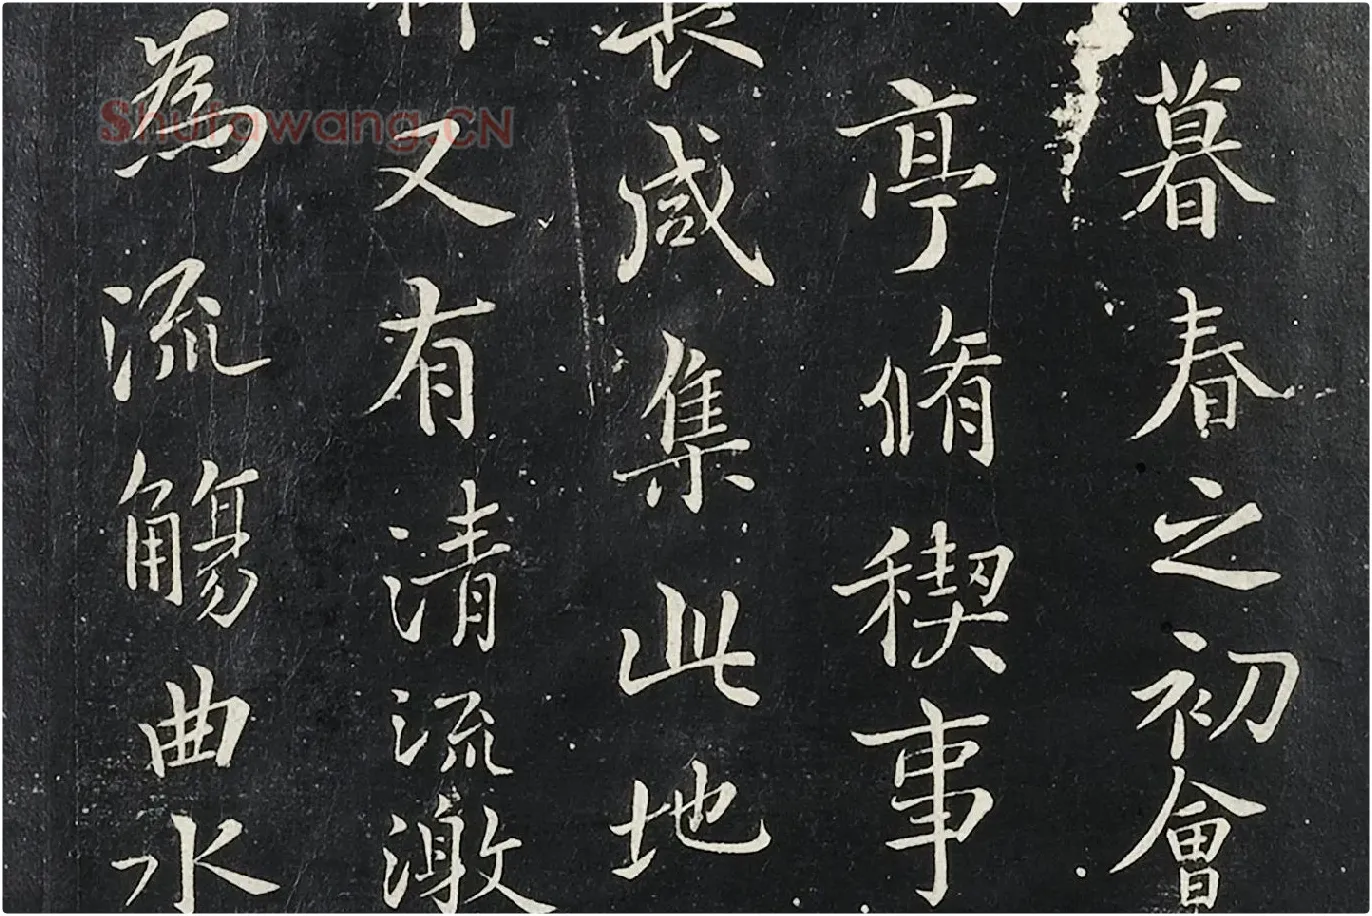 暮春之初會
亭脩稧事
長咸集此地
又有清流激
為流觴曲水
Shufawang.CN